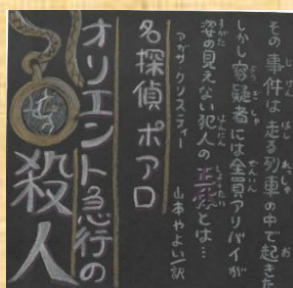 その事件は走る列車の中で起きた
しかし容疑者には全員アリバイが
姿の見えない犯人の正体とは…
アガサ・クリスティー 山本やよい訳
名探偵ポアロ
オリエント急行の
殺人